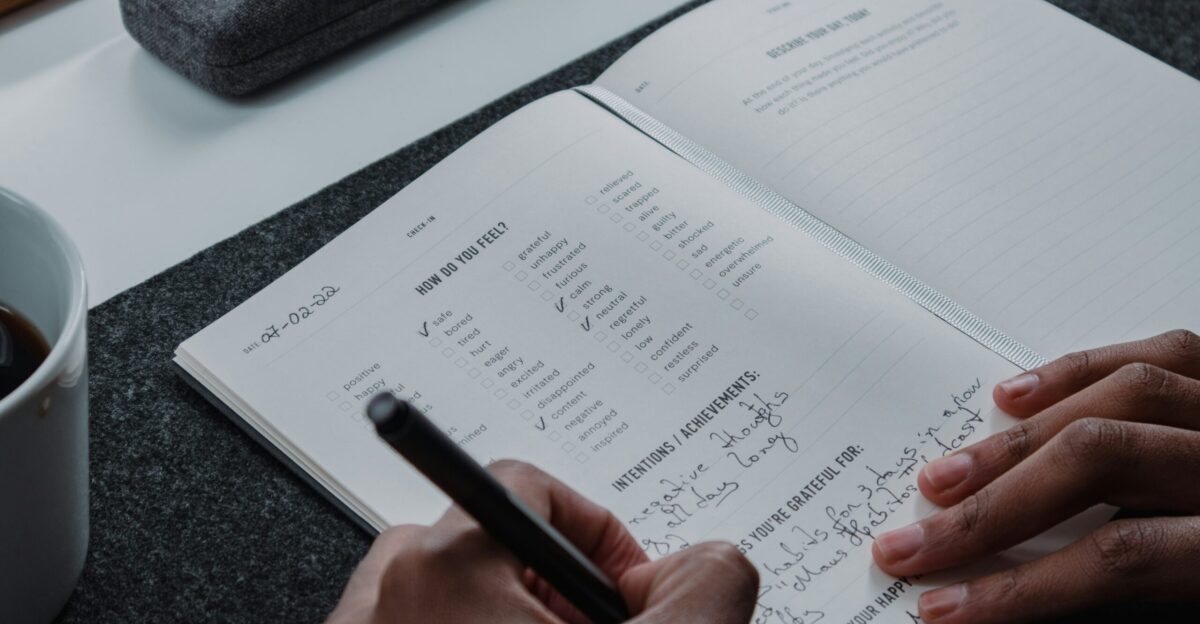 CHECK-IN
DATE: 07-02-22
HOW DO YOU FEEL?
positive
happy
safe
bored
tired
hurt
eager
angry
excited
irritated
disappointed
content
negative
annoyed
inspired
grateful
unhappy
frustrated
furious
calm
strong
neutral
regretful
lonely
low
confident
restless
surprised
relieved
scared
trapped
alive
guilty
bitter
shocked
sad
energetic
overwhelmed
unsure
INTENTIONS / ACHIEVEMENTS:
negative thoughts
all day long
YOU'RE GRATEFUL FOR:
habits for 3 days in a row
YOUR HAPPY
DATE:
DESCRIBE YOUR DAY, TODAY
At the end of your day,
how each thing made you feel. Did you enjoy it? Why did you
do it? Is there anything you would have preferred to do?